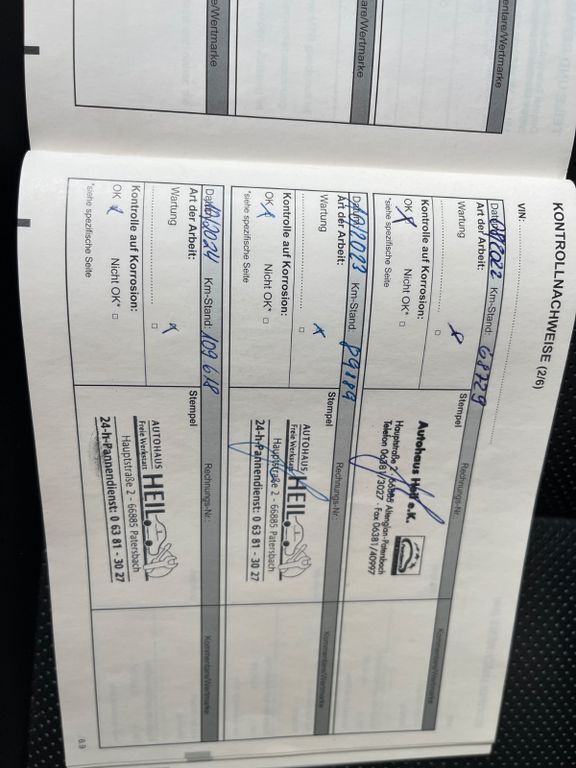 KONTROLLNACHWEISE (2/6)
VIN:
Km-Stand: 68729
Art der Arbeit:
Wartung
Kontrolle auf Korrosion:
OK Nicht OK*
*siehe spezifische Seite
Stempel
Rechnungs-Nr.
Kommentare/Wertmarke
Autohaus Heil e.K.
Hauptstraße 2 · 66885 Altenglan-Patersbach
Telefon 06381/3027 · Fax 06381/40997
Km-Stand: 89189
Art der Arbeit:
Wartung
Kontrolle auf Korrosion:
OK Nicht OK*
*siehe spezifische Seite
Stempel
Rechnungs-Nr.
Kommentare/Wertmarke
AUTOHAUS
Freie Werkstatt HEIL
Hauptstraße 2 - 66885 Patersbach
24-h-Pannendienst: 0 63 81 - 30 27
2024 Km-Stand: 109 618
Art der Arbeit:
Wartung
Kontrolle auf Korrosion:
OK Nicht OK*
*siehe spezifische Seite
Stempel
Rechnungs-Nr.
Kommentare/Wertmarke
AUTOHAUS
Freie Werkstatt HEIL
Hauptstraße 2 - 66885 Patersbach
24-h-Pannendienst: 0 63 81 - 30 27
6.9